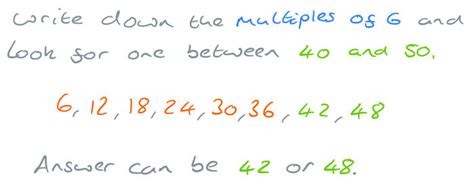 write down the multiples of 6 and
look for one between 40 and 50.
6, 12, 18, 24, 30, 36, 42, 48
Answer can be 42 or 48.